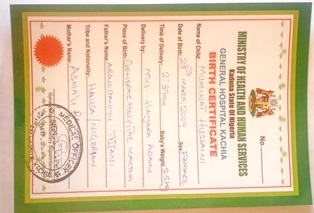 No.
MINISTRY OF HEALTH AND HUMAN SERVICES
Kaduna State Of Nigeria
GENERAL HOSPITAL KACHIA
BIRTH CERTIFICATE
Name of Child: MUMINAT HUSSAINI
Date of Birth: 28th MARCH 2000 Sex FEMALE
Time of Delivery: 2:37am Baby's Weight: 3.5kg
Delivery by: Mrs. HAJARA ADAMU
Place of Birth: GENERAL HOSPITAL KACHIA
Father's Name:
Tribe and Nationality: HAUSA NIGERIAN
Mother's Name: ASMA'U
MEDICAL OFFICER